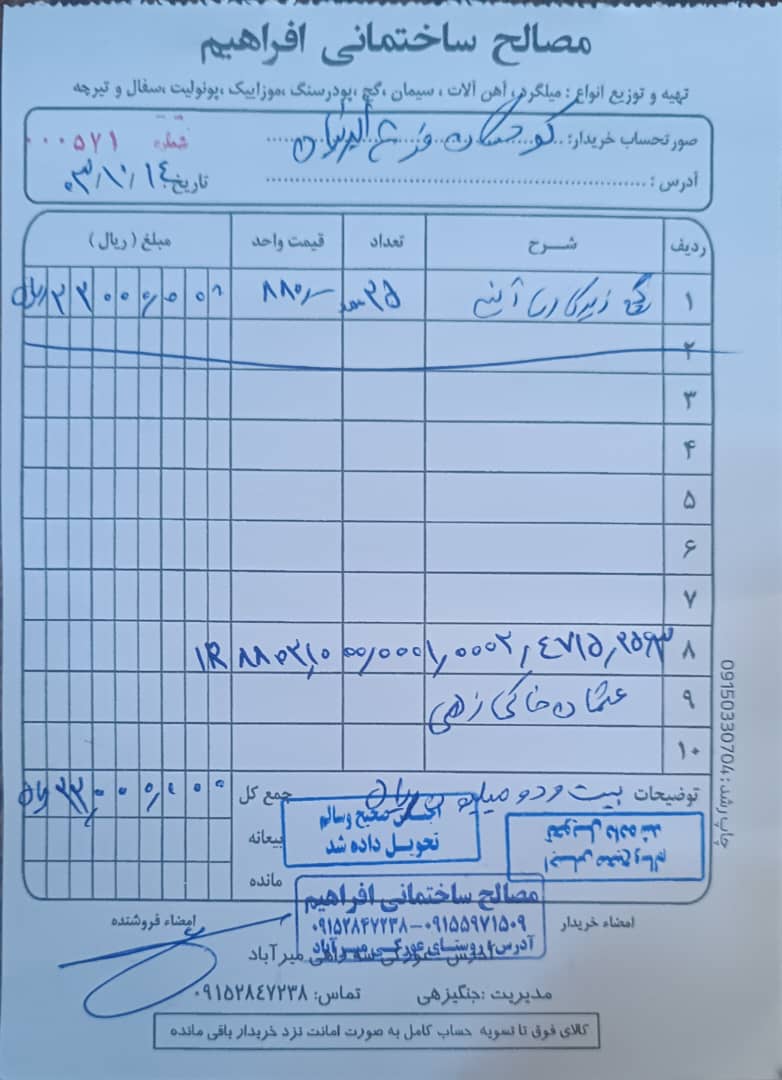 مصالح ساختمانی افراهیم
تهیه و توزیع انواع : میلگرد، آهن آلات ، سیمان ،گچ ،پودرسنگ ،موزاییک ،یونولیت ،سفال و تیرچه
صورتحساب خریدار:
شماره ۰۰۰۵۷۱
آدرس :
تاریخ: ۰۳/۱۰/۱۴
ردیف شـــرح تعداد قیمت واحد مبلغ ( ریال )
۱ گچ زیرکاری ۲۵ ۸۸۰/- ۲۲۰۰۰/۰۰۰ ریال
۲
۳
۴
۵
۶
۷
۸
۹ عثمان خاکی زهی
۱۰
توضیحات بیست و دو میلیون ریال جمع کل ۲۲,۰۰۰,۰۰۰ ریال
بیعانه
مانده
اجناس صحیح وسالم
تحویل داده شد
اجناس صحیح وسالم
تحویل داده شد
مصالح ساختمانی افراهیم
۰۹۱۵۲۸۴۷۲۳۸-۰۹۱۵۵۹۷۱۵۰۹
آدرس: روستای عورکی میرآباد
امضاء خریدار
امضاء فروشنده
میرآباد
مدیریت :جنگیزهی تماس: ۰۹۱۵۲۸۴۷۲۳۸
کالای فوق تا تسویه حساب کامل به صورت امانت نزد خریدار باقی مانده
چاپ رشد:09150330704